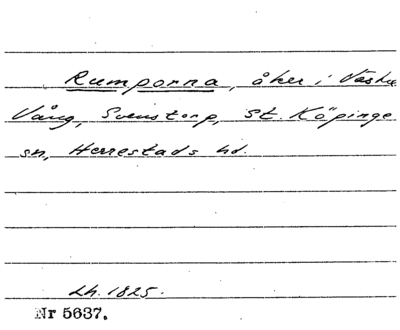 Rumporna, åker i Västra
Vång, Svenstorp, St. Köpinge
sn, Herrestads hd.
Lh. 1825.
Nr 5637.